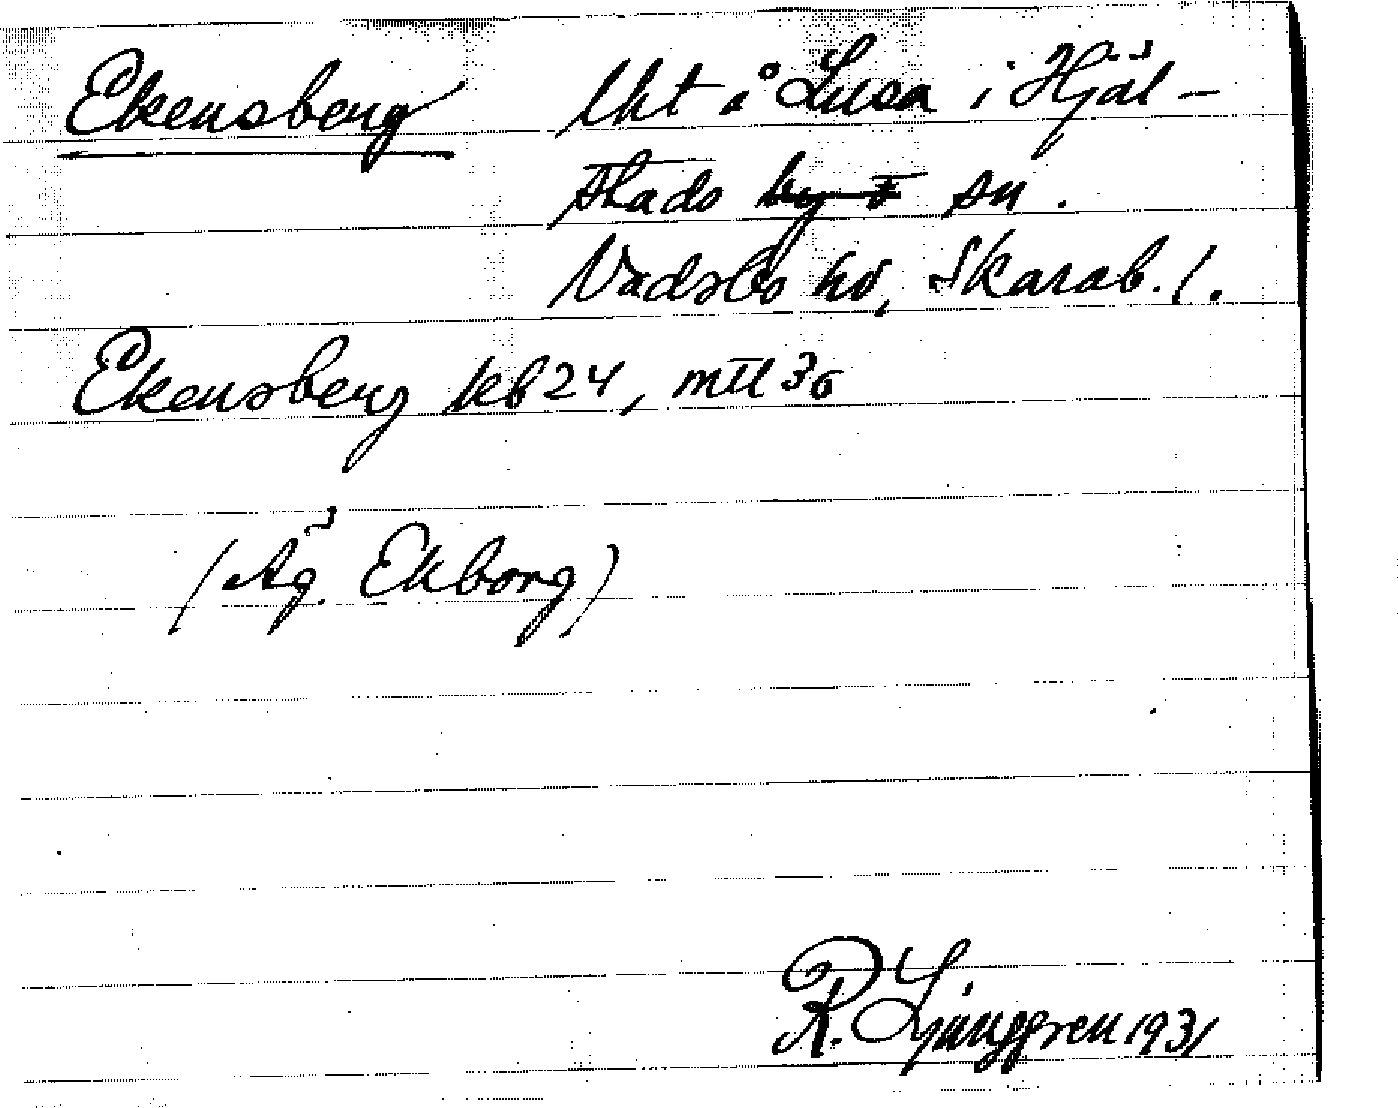 Ekensberg lht å Lusa i Hjäl-
stads sn.
Vadsbo hd, Skarab. l.
Ekensberg kb 24, mtl 36
(Äg. Ekborg)
R. Ljunggren 1931